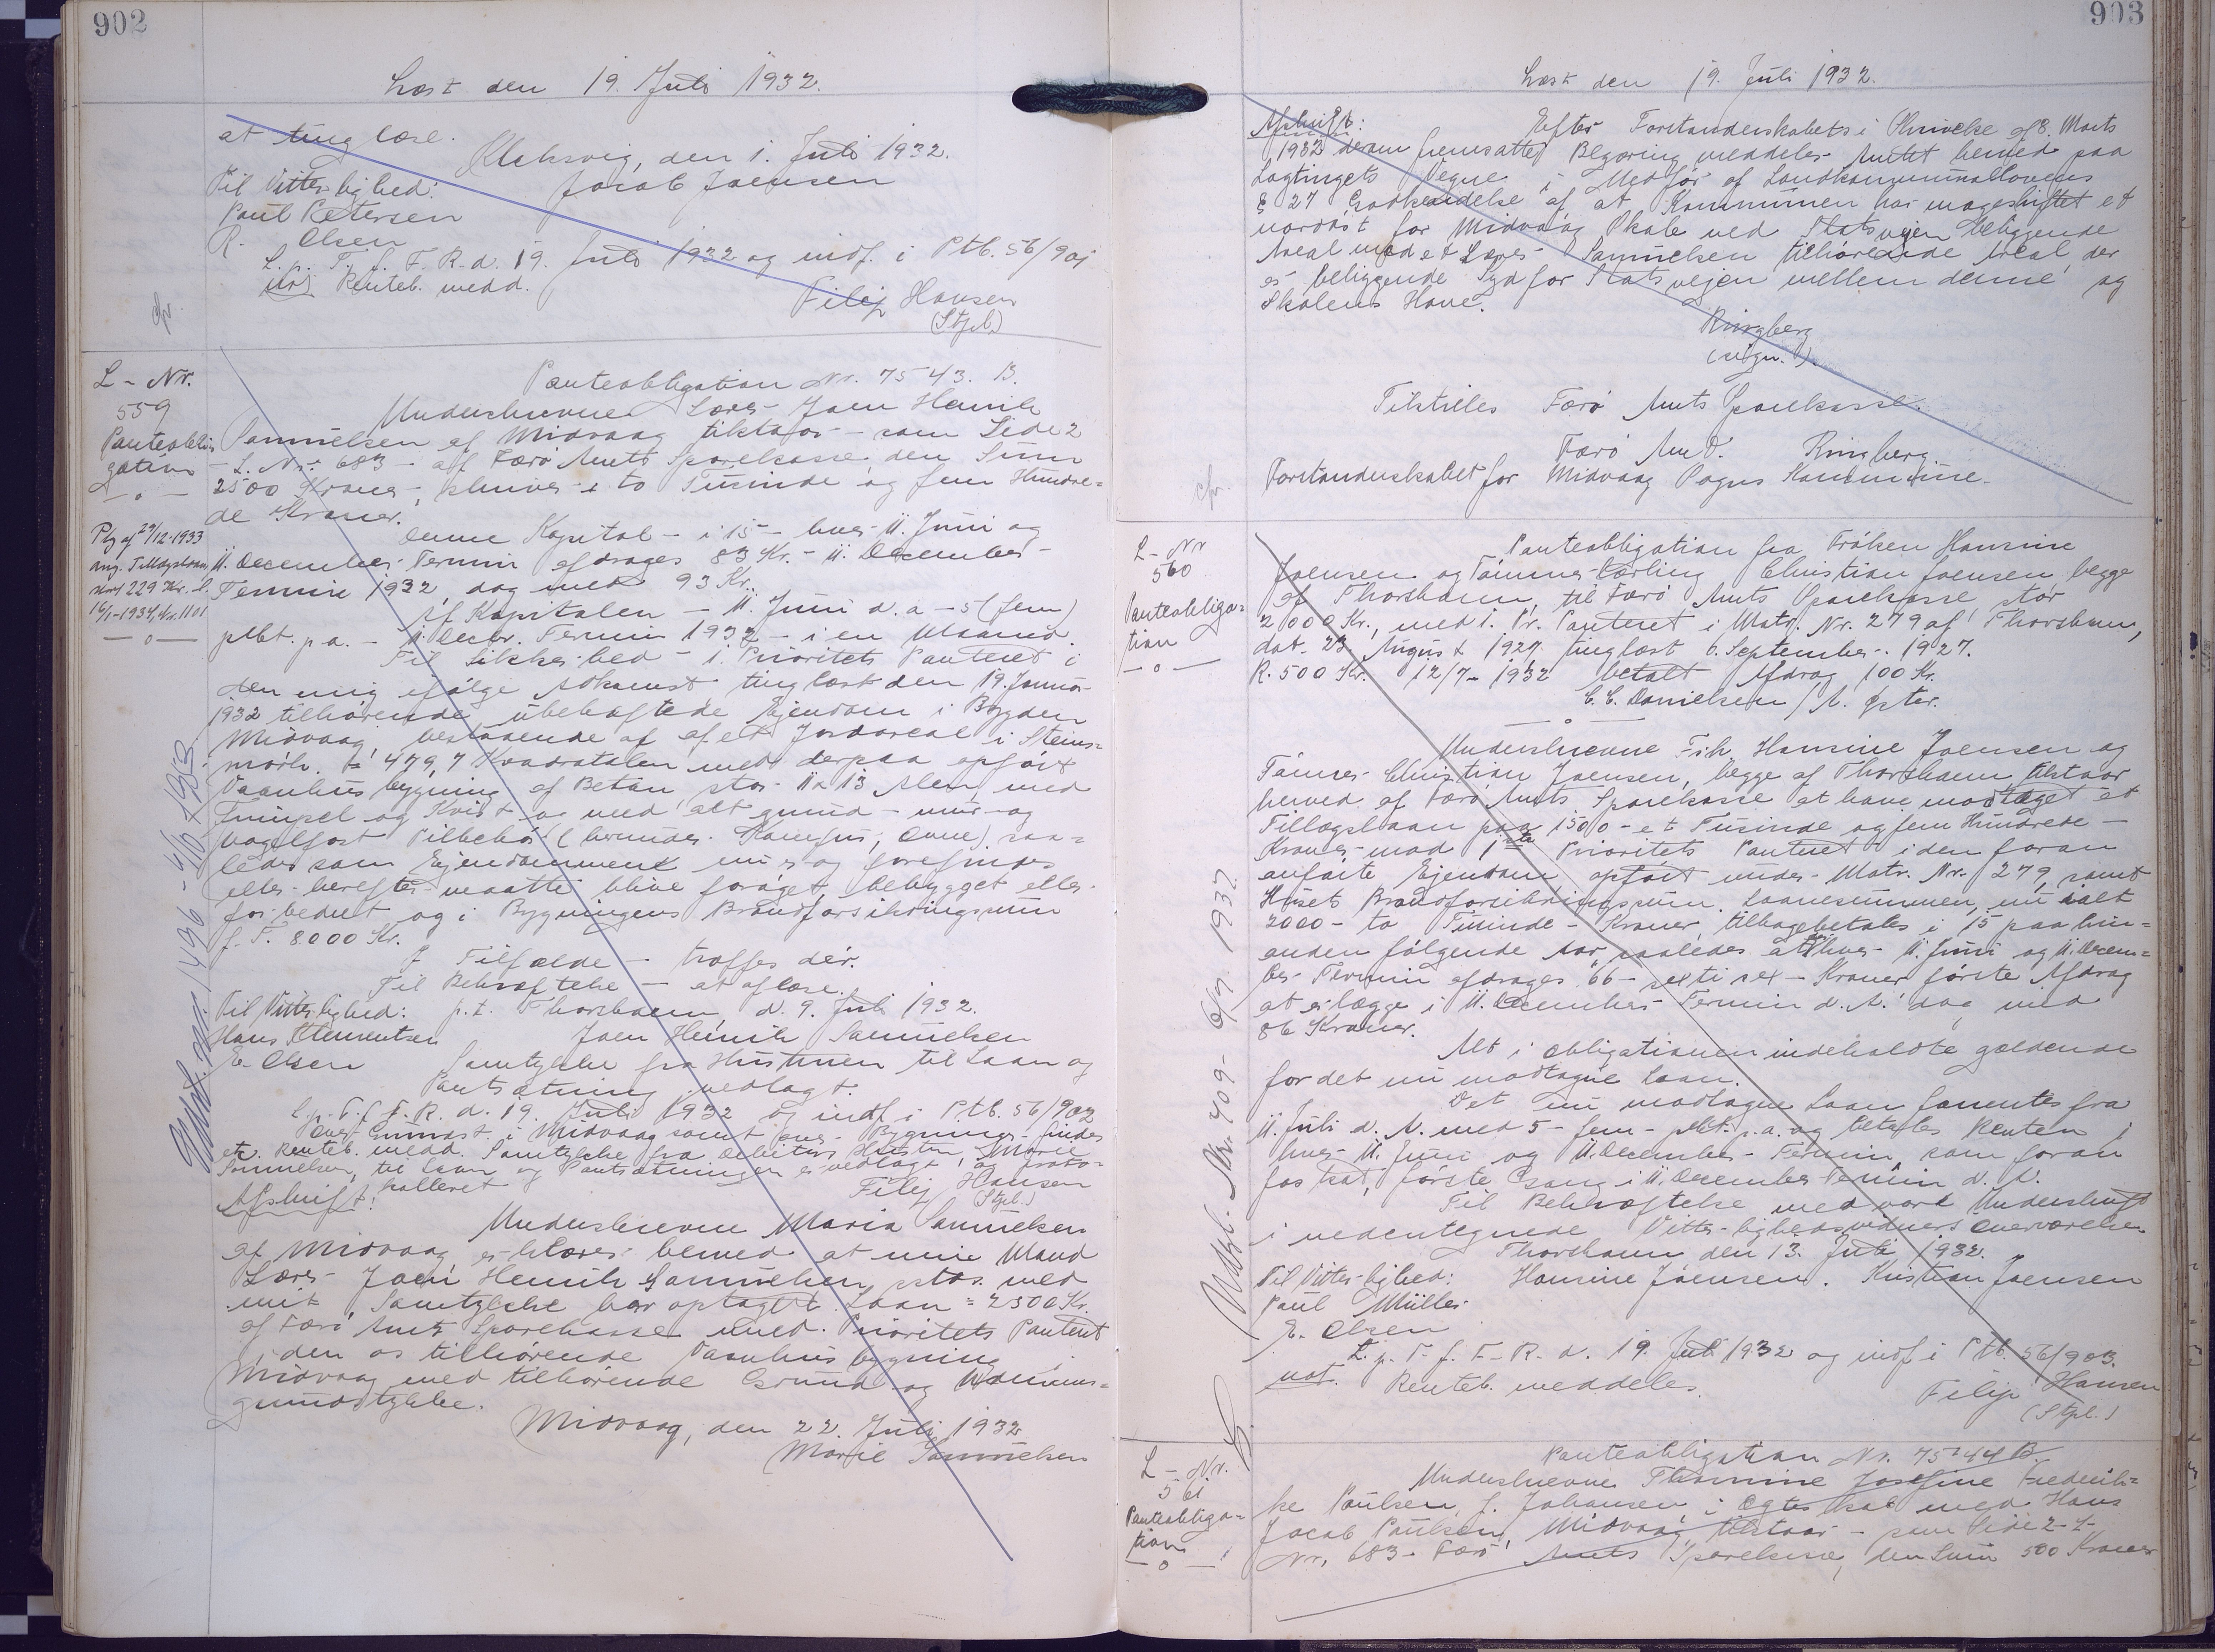 902
Læst den 19. Juli 1932.
at tinglæse.
Klaksvig, den 1. Juli 1932.
Til Vitterlighed: Jacob Joensen
Paul Petersen
R. Olsen
L. p. T. f. F. R. d. 19. Juli 1932 og indf. i Ptb. 56/901
not Renteb. medd.
Filip Hansen
(Stpl.)
cfr.
L-Nr.
559
Panteobli-
gation
—o—
Ptg af 29/12-1933
ang. Tillægslaan
stort 229 Kr. l.
16/1-1934, Nr. 1101
—o—
Udsl. nr. 1496 -
Panteobligation Nr. 7543. B.
Underskrevne Lærer Joen Henrik
Samuelsen af Midvaag tilstaar - som Side 2
- L. Nr. 683 - af Færö Amts Sparekasse den Sum
2500 Kroner, skriver to Tusinde og fem Hundre-
de Kroner.
Denne Kapital - i 15 - hver 11. Juni og
11. December Termin afdrages 83 Kr. - 11. December -
Termin 1932 dog med 93 Kr.
Af Kapitalen - 11. Juni d. a - 5 (fem)
pCt. p. a. - 11 Decbr. Termin 1932 - i en Maaned.
Til Sikkerhed - 1. Prioritets Panteret i
den mig ifölge Adkomst tinglæst den 19. Januar
1932 tilhörende ubehæftede Ejendom i Bygden
Midvaag, bestaaende af af et Jordareal i Steins-
mörk. = 479,7 Kvadratalen med derpaa opfört
Vaanhusbygning af Beton stor 11 x 13 Alen med
Frinspel og Kvist og med alt grund- mur- og
nagelfast Tilbehör (herunder Komfur, Ovne) saa-
ledes som Ejendommene nu er og forefindes
eller herefter maatte blive foröget, bebygget eller
forbedret og i Bygningens Brandforsikringssum
f. T. 8000 Kr.
I Tilfælde - træffes dér.
Til Bekræftelse - at aflæse.
Til Vitterlighed: p. t. Thorshavn, d. 9. Juli 1932.
Hans Klementsen Joen Henrik Samuelsen
E. Olsen Samtykke fra Hustruen til Laan og
Pantsætning vedlagt.
L. p. T. f. F. R. d. 19. Juli 1932 og indf. i Ptb. 56/902
Over Grundst. i Midvaag samt over Bygninger findes
etc. Renteb. medd. Samtykke fra Debitors Hustru, Marie
Samuelsen, til Laan og Pantsætningen er vedlagt, og proto-
kolleret Filip Hansen
Afskrift: (Stpl.)
Underskrevne Maria Samuelsen
af Midvaag erklærer herved at min Mand
Lærer Joen Henrik Samuelsen, sstds. med
mit Samtykke har optaget Laan = 2500 Kr.
af Færö Amts Sparekasse imod. Prioritets Panteret
i den os tilhörende Vaanhusbygning i
Midvaag med tilhörende Grund og
grundstykke.
Midvaag, den 22. Juli 1932
Marie Samuelsen
903
Læst den 19. Juli 1932.
Afskrift: Efter Forstanderskabets i Skrivelse af 8. Marts
1932 derom fremsatte Begæring meddeler Amtet herved paa
Lagtingets Vegne i Medför af Landkommunallovens
§ 27 Godkendelse af at Kommunen har mageskiftet et
nordöst for Midvaag Skole ved Statsvejen beliggende
Areal med et Lærer Samuelsen tilhörende Areal der
er beliggende Syd for Statsvejen mellem denne og
Skolens Have.
Ringberg
(sign.)
Tilstilles Færö Amts Sparekasse.
Færö Amt. Ringberg.
Forstanderskabet for Midvaag Sogns Kommune.
cfr.
L-Nr
560
Panteobliga-
tion
—o—
Udsl. Nr. 409 - 6/7 1937.
Panteobligation fra Fröken Hansine
Joensen og Tömmerlærling Christian Joensen, begge
af Thorshavn, til Færö Amts Sparekasse stor
2000 Kr., med 1. Pr. Panteret i Matr. Nr. 279 af Thorshavn,
dat. 23. August 1927. tinglæst 6. September 1927.
R. 500 Kr. 12/7-1932 betalt Afdrag 100 Kr.
C. C. Danielsen / A. Öster.
—o—
Underskrevne Frk. Hansine Joensen og
Tömrer Christian Joensen, begge af Thorshavn tilstaar
herved af Færö Amts Sparekasse at have modtaget et
Tillægslaan paa 1500 - et Tusinde og fem Hundrede -
Kroner mod 1ste Prioritets Panteret i den foran
anförte Ejendom opfört under Matr. Nr. 279 samt
Husets Brandforsikringssum. Laanesummen, nu ialt
2000 - to Tusinde - Kroner, tilbagebetales i 15 paa hin-
anden fölgende Aar saaledes at hver 11. Juni og 11. Decem-
ber Termin afdrages 66 - seksti sex - Kroner förste Afdrag
at erlægge i 11. December Termin d. A. dog med
86 Kroner.
Alt i Obligationen indeholdte gældende
for det nu modtagne Laan.
Det nu modtagne Laan forrentes fra
11. Juli d. A. med 5 - fem - pCt. p. a. og betales Renten i
hver 11. Juni og 11. December Termin, som foran
fastsat, förste Gang i 11. December Termin d. A.
Til Bekræftelse med vore Underskrift
i nedentegnede Vitterlighedsvidners Overværelse
Thorshavn den 13. Juli 1932.
Til Vitterlighed: Hansine Joensen. Kristian Joensen
Paul Müller
E. Olsen
L. p. T. f. F. R. d. 19. Juli 1932 og indf. i Ptb. 56/903.
not. Renteb. meddeles.
Filip Hansen
(Stpl.)
L-Nr.
561
Panteobliga-
tion
—o—
Panteobligation Nr. 7544 B.
Underskrevne Thomine Josefine Frederik-
ke Poulsen, f. Johansen, i Ægteskab med Hans
Jacob Poulsen, Midvaag tilstaar - som Side 2 L.
Nr. 683 - Færö Amts Sparekasse, den Sum 500 Kroner